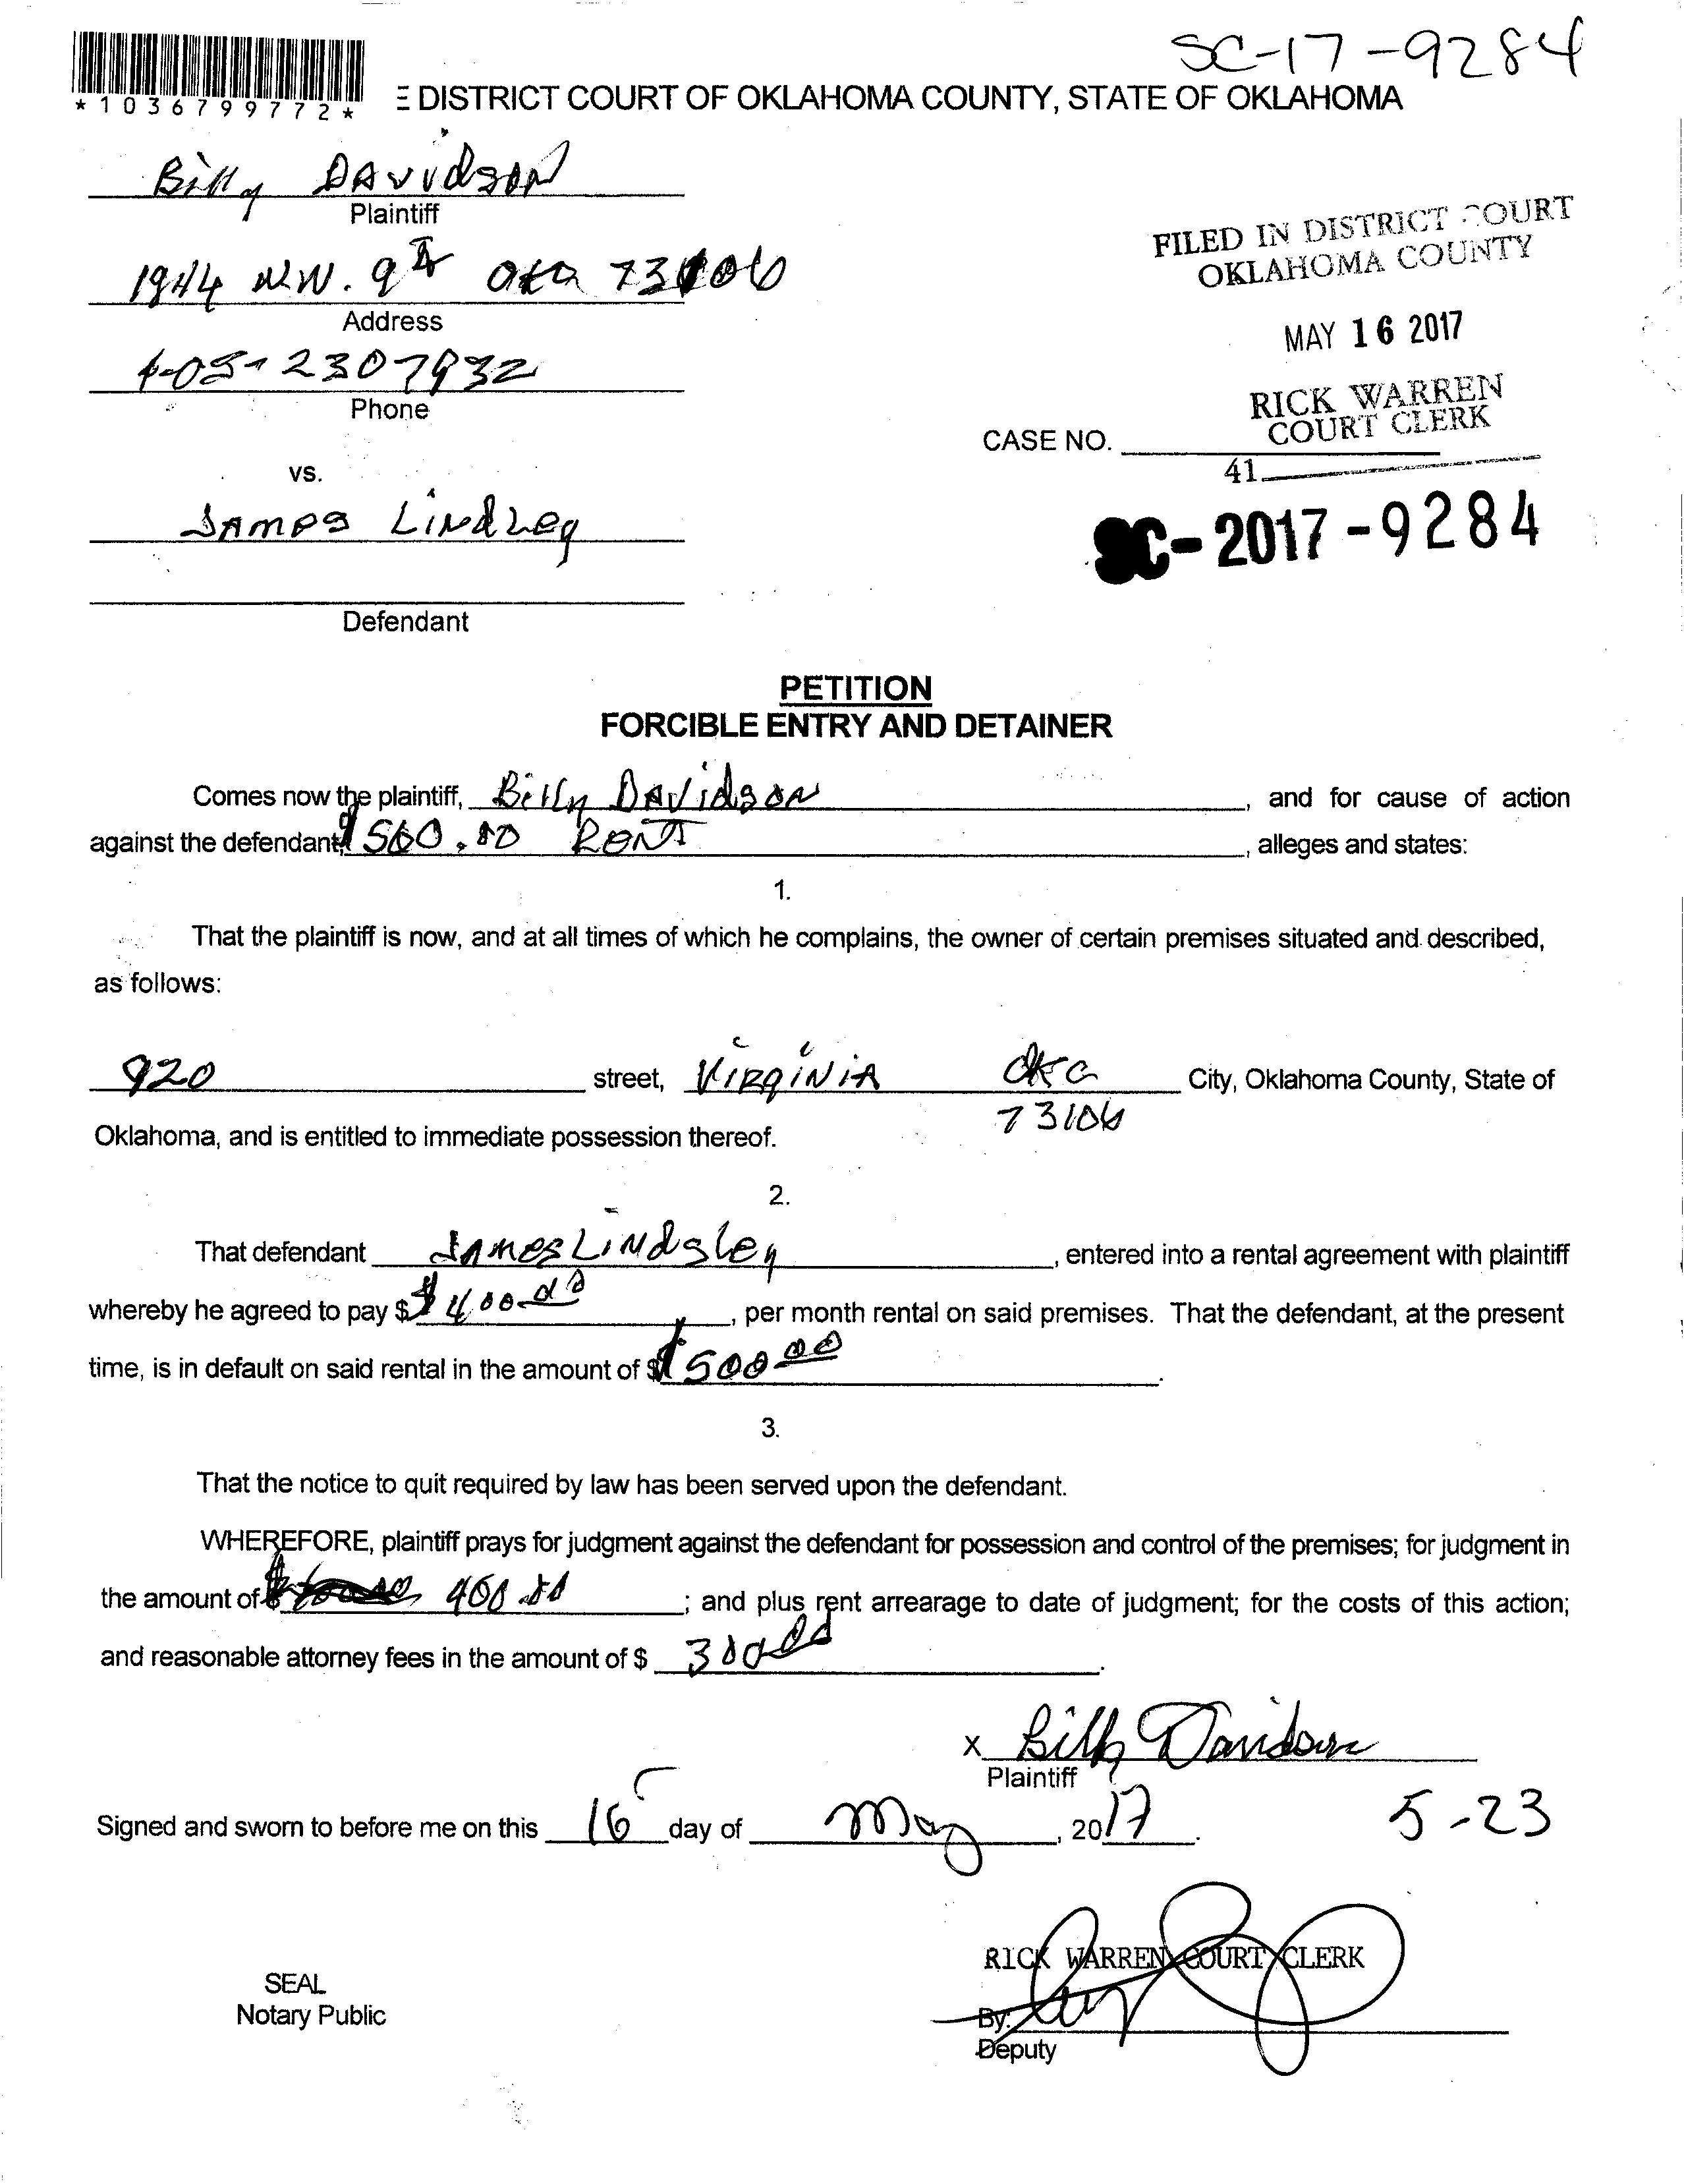 SC-17-9284
*1036799772*
E DISTRICT COURT OF OKLAHOMA COUNTY, STATE OF OKLAHOMA
Billy Davidson
Plaintiff
1944 N.W. 9th OKC 73106
Address
405-2307932
Phone
vs.
James Lindley
Defendant
FILED IN DISTRICT COURT
OKLAHOMA COUNTY
MAY 16 2017
RICK WARREN
COURT CLERK
CASE NO.
41
SC-2017-9284
PETITION
FORCIBLE ENTRY AND DETAINER
Comes now the plaintiff, Billy Davidson, and for cause of action
against the defendant, $500.00 Rent, alleges and states:
1.
That the plaintiff is now, and at all times of which he complains, the owner of certain premises situated and described,
as follows:
920 street, Virginia OKC City, Oklahoma County, State of
73106
Oklahoma, and is entitled to immediate possession thereof.
2.
That defendant James Lindsley, entered into a rental agreement with plaintiff
whereby he agreed to pay $ $400.00, per month rental on said premises. That the defendant, at the present
time, is in default on said rental in the amount of $ $500.00.
3.
That the notice to quit required by law has been served upon the defendant.
WHEREFORE, plaintiff prays for judgment against the defendant for possession and control of the premises; for judgment in
the amount of $ ; and plus rent arrearage to date of judgment; for the costs of this action;
and reasonable attorney fees in the amount of $ 300.00.
X Billy Davidson
Plaintiff
Signed and sworn to before me on this 16 day of May, 2017. 5-23
RICK WARREN COURT CLERK
SEAL
Notary Public
By:
Deputy